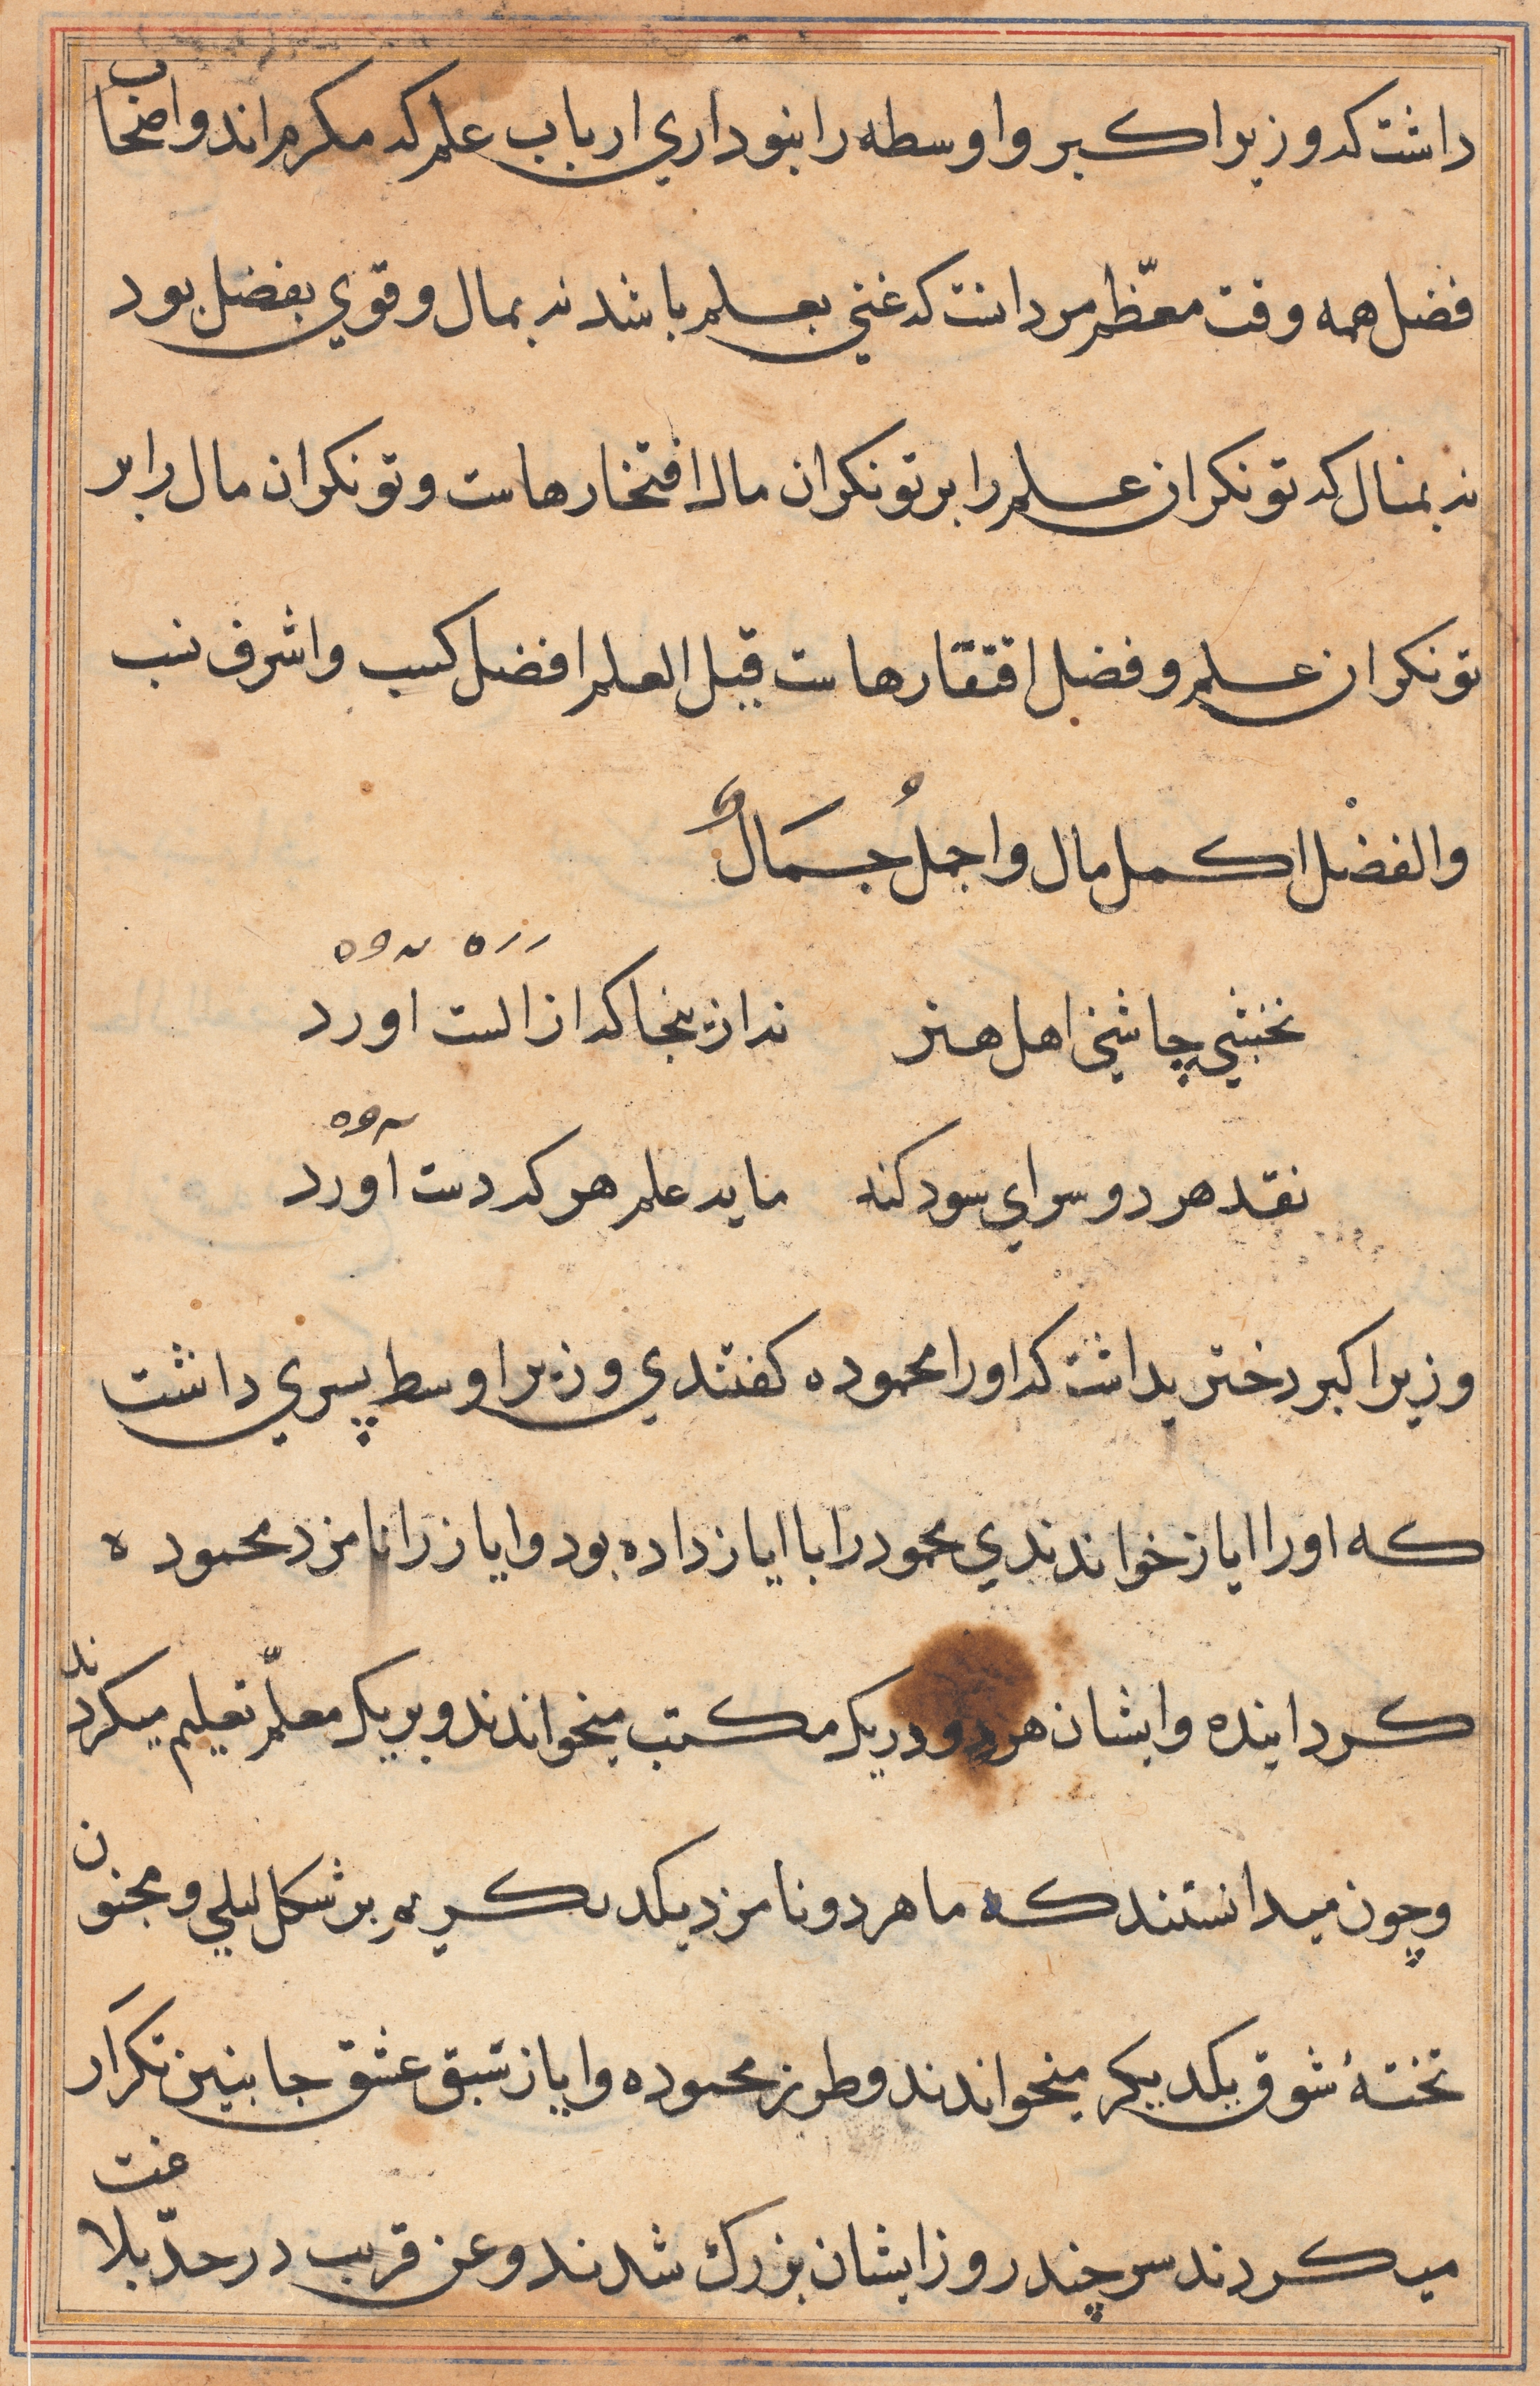 داشت که وزیر اکبر و اوسطه را بنوداري ارباب علم که مکرم اند و اصحاب
فضل همه وقت معظّم مرد انست که غني بعلم باشد نه بمال و قوي بفضل بود
نه بمنال که تونکران علم را بر تونکران مال افتخارهاست و تونکران مال را بر
تونکران علم و فضل افتقارهاست قیل العلم افضل کسب و اشرف نسب
والفضْل اکمل مال واجملُ جَمَالٌ
نخشبي چاشني اهل هنر نه ازینجا که از الست اورد
نقد هر دو سراي سود کند مایه علم هر که دست اورد
وزیر اکبر دختر یداشت که اورا محموده کفتندي وزیر اوسط پسري داشت
که اورا ایاز خواندندي محمود را با ایاز داده بود و ایاز را نامزد محموده
کردانیده وایشان هر دو در یک مکتب میخواندند و بر یک معلّم تعلیم میکردند
وچون میدانستند که ما هر دو نامزد یکدیکریم بر شکل لیلي و مجنون
تختهٔ شوق یکدیکر میخواندند و طرز محموده و ایاز سبق عشق جانبین تکرَار
میکردند سر چند روز ایشان بزرك شدند وعن قریب در حدّ بلاغت